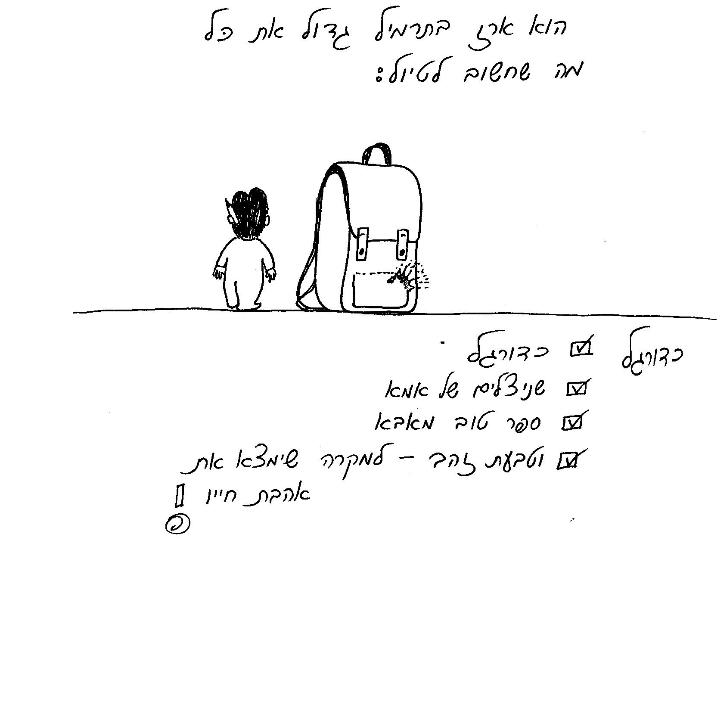 הוא ארז בתרמיל גדול את כל
מה שחשוב לטיול:
כדורגל
☑ כדורגל
☑ שניצלים של אמא
☑ ספר טוב מאבא
☑ וטבעת זהב – למקרה שימצא את
אהבת חייו